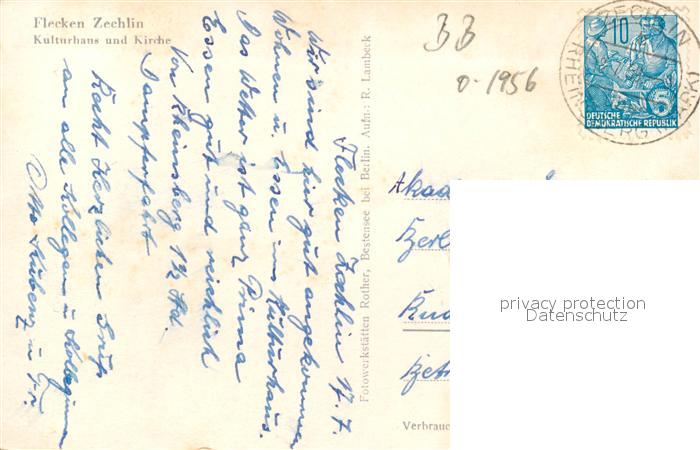 Flecken Zechlin
Kulturhaus und Kirche
Flecken Zechlin 17.7.
Wir sind hier gut angekommen
Wohnen u. Essen im Kulturhaus.
Das Wetter ist ganz Prima
Essen gut und reichlich
Von Rheinsberg 1½ Std.
Dampferfahrt
Recht Herzlichen Gruß
an alle Kollegen u Kolleginnen
Otto u. Fr.
Fotowerkstätten Rother, Bestensee bei Berlin. Aufn.: R. Lambeck
BB
0-1956
10
5
DEUTSCHE
DEMOKRATISCHE REPUBLIK
ZECHLIN
RHEINSBERG (MARK)
Akad
Berl
Verbrauc
privacy protection
Datenschutz